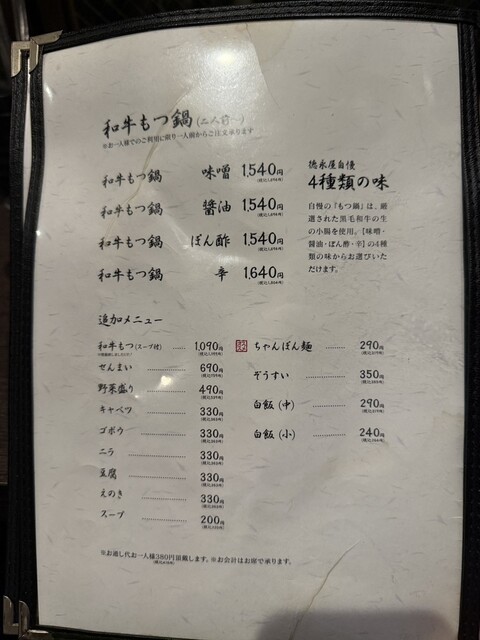 和牛もつ鍋(二人前〜)
※お一人様でのご利用に限り一人前からご注文承ります
和牛もつ鍋 味噌 1,540円
(税込1,694円)
和牛もつ鍋 醤油 1,540円
(税込1,694円)
和牛もつ鍋 ぽん酢 1,540円
(税込1,694円)
和牛もつ鍋 辛 1,640円
(税込1,804円)
徳永屋自慢
4種類の味
自慢の『もつ鍋』は、厳
選された黒毛和牛の生
の小腸を使用。【味噌・
醤油・ぽん酢・辛】の4種
類の味からお選びいた
だけます。
追加メニュー
和牛もつ(スープ付) 1,090円
(税込1,199円)
せんまい 690円
(税込759円)
野菜盛り 490円
(税込539円)
キャベツ 330円
(税込363円)
ゴボウ 330円
(税込363円)
ニラ 330円
(税込363円)
豆腐 330円
(税込363円)
えのき 330円
(税込363円)
スープ 200円
(税込220円)
ちゃんぽん麺 290円
(税込319円)
ぞうすい 350円
(税込385円)
白飯(中) 290円
(税込319円)
白飯(小) 240円
(税込264円)
※お通し代お一人様380円頂戴します。※お会計はお席で承ります。
(税込418円)